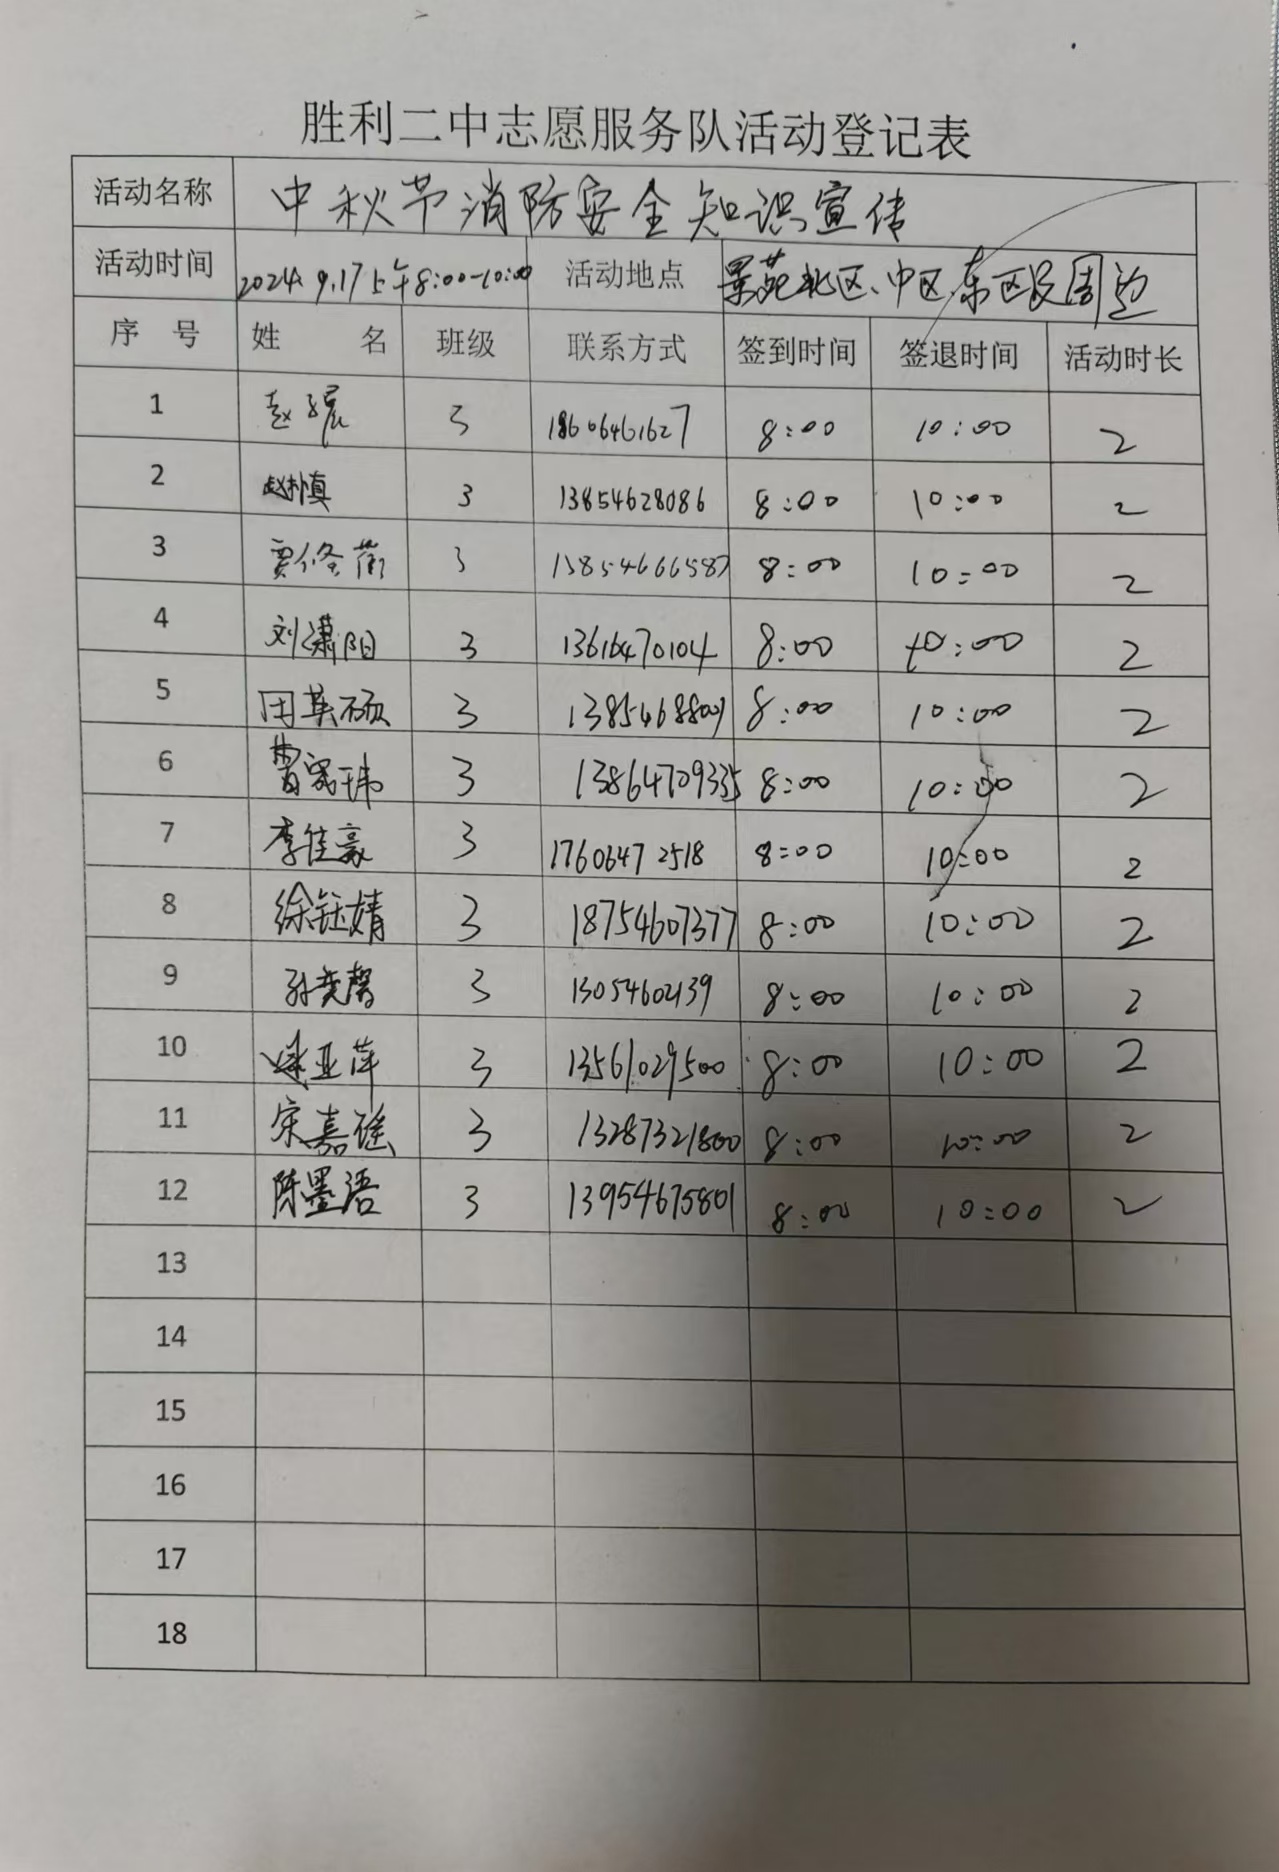 胜利二中志愿服务队活动登记表
活动名称 中秋节消防安全知识宣传
活动时间 2024.9.17上午8:00-10:00 活动地点 景苑北区、中区、东区及周边
序 号 姓 名 班级 联系方式 签到时间 签退时间 活动时长
1 赵 3 18606461627 8:00 10:00 2
2 赵 3 13854628086 8:00 10:00 2
3 贾修 3 13854666587 8:00 10:00 2
4 刘潇阳 3 13616470104 8:00 10:00 2
5 田英硕 3 8:00 10:00 2
6 3 13864709335 8:00 10:00 2
7 李佳豪 3 17606472518 8:00 10:00 2
8 徐钰婧 3 18754607377 8:00 10:00 2
9 孙奕馨 3 13054602139 8:00 10:00 2
10 亚萍 3 13561029500 8:00 10:00 2
11 宋嘉瑶 3 13287321800 8:00 10:00 2
12 陈墨语 3 13954675801 8:00 10:00 2
13
14
15
16
17
18